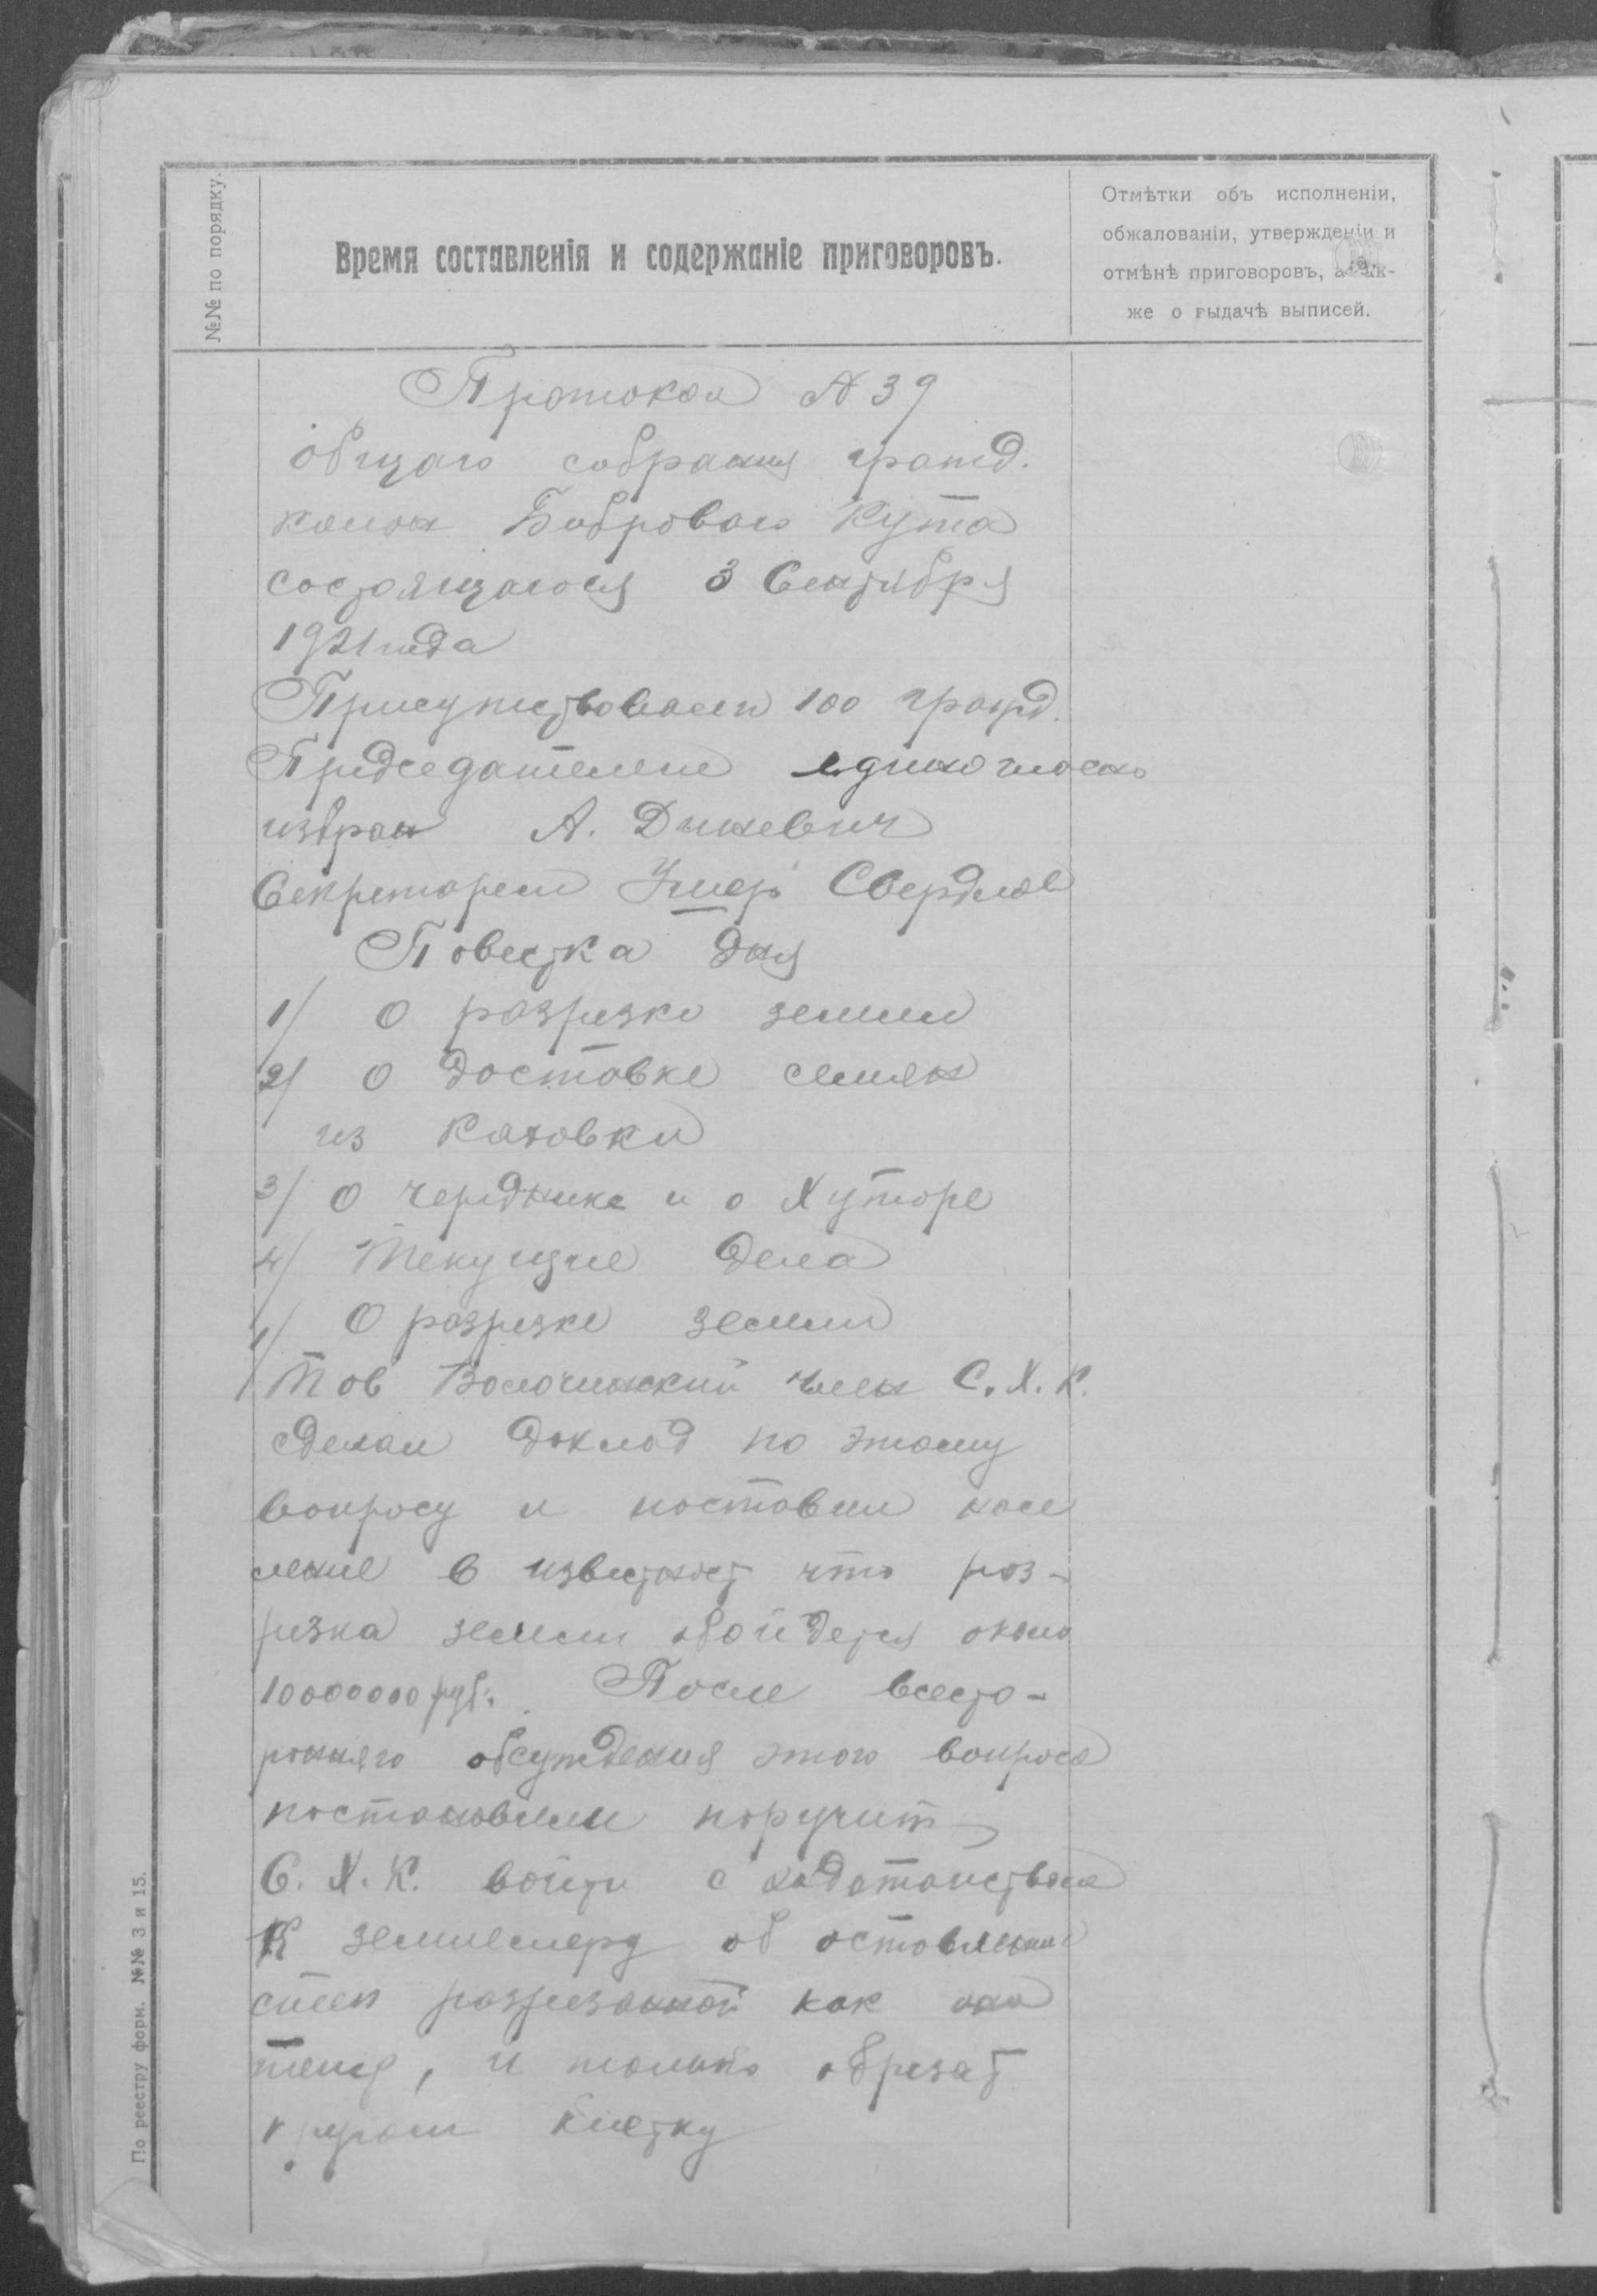 №№ по порядку.
Время составленія и содержаніе приговоровъ.
Отмѣтки объ исполненіи,
обжалованіи, утвержденіи и
отмѣнѣ приговоровъ, а так-
же о выдачѣ выписей.
Протокол № 39
общаго собрания гражд.
колон Боброваго Кута
состоящагося 3 Сентября
1921 года
Присутствовали 100 гражд.
Придседателем единогласно
избран А. Дикевич
Секретарем Свердлов
Повестка дня
1/ О разрезке земли
2/ О доставке семян
из Каховки
3/ О череднике и о Хуторе
4/ Текущие дела
1/ О разрезке земли
Тов Волочинский член С. Х. К.
сделал доклад по этому
вопросу и поставил насе
ление в известност что раз-
резка земли обойдется около
10000000 руб. После всесто-
роняго обсуждения этого вопроса
постановили поручит
С. Х. К. войти с ходатайством
К землемеру об оставлении
степ разрезаной как она
тепер, и только обрезат
кругом клетку
По реестру форм. №№ 3 и 15.